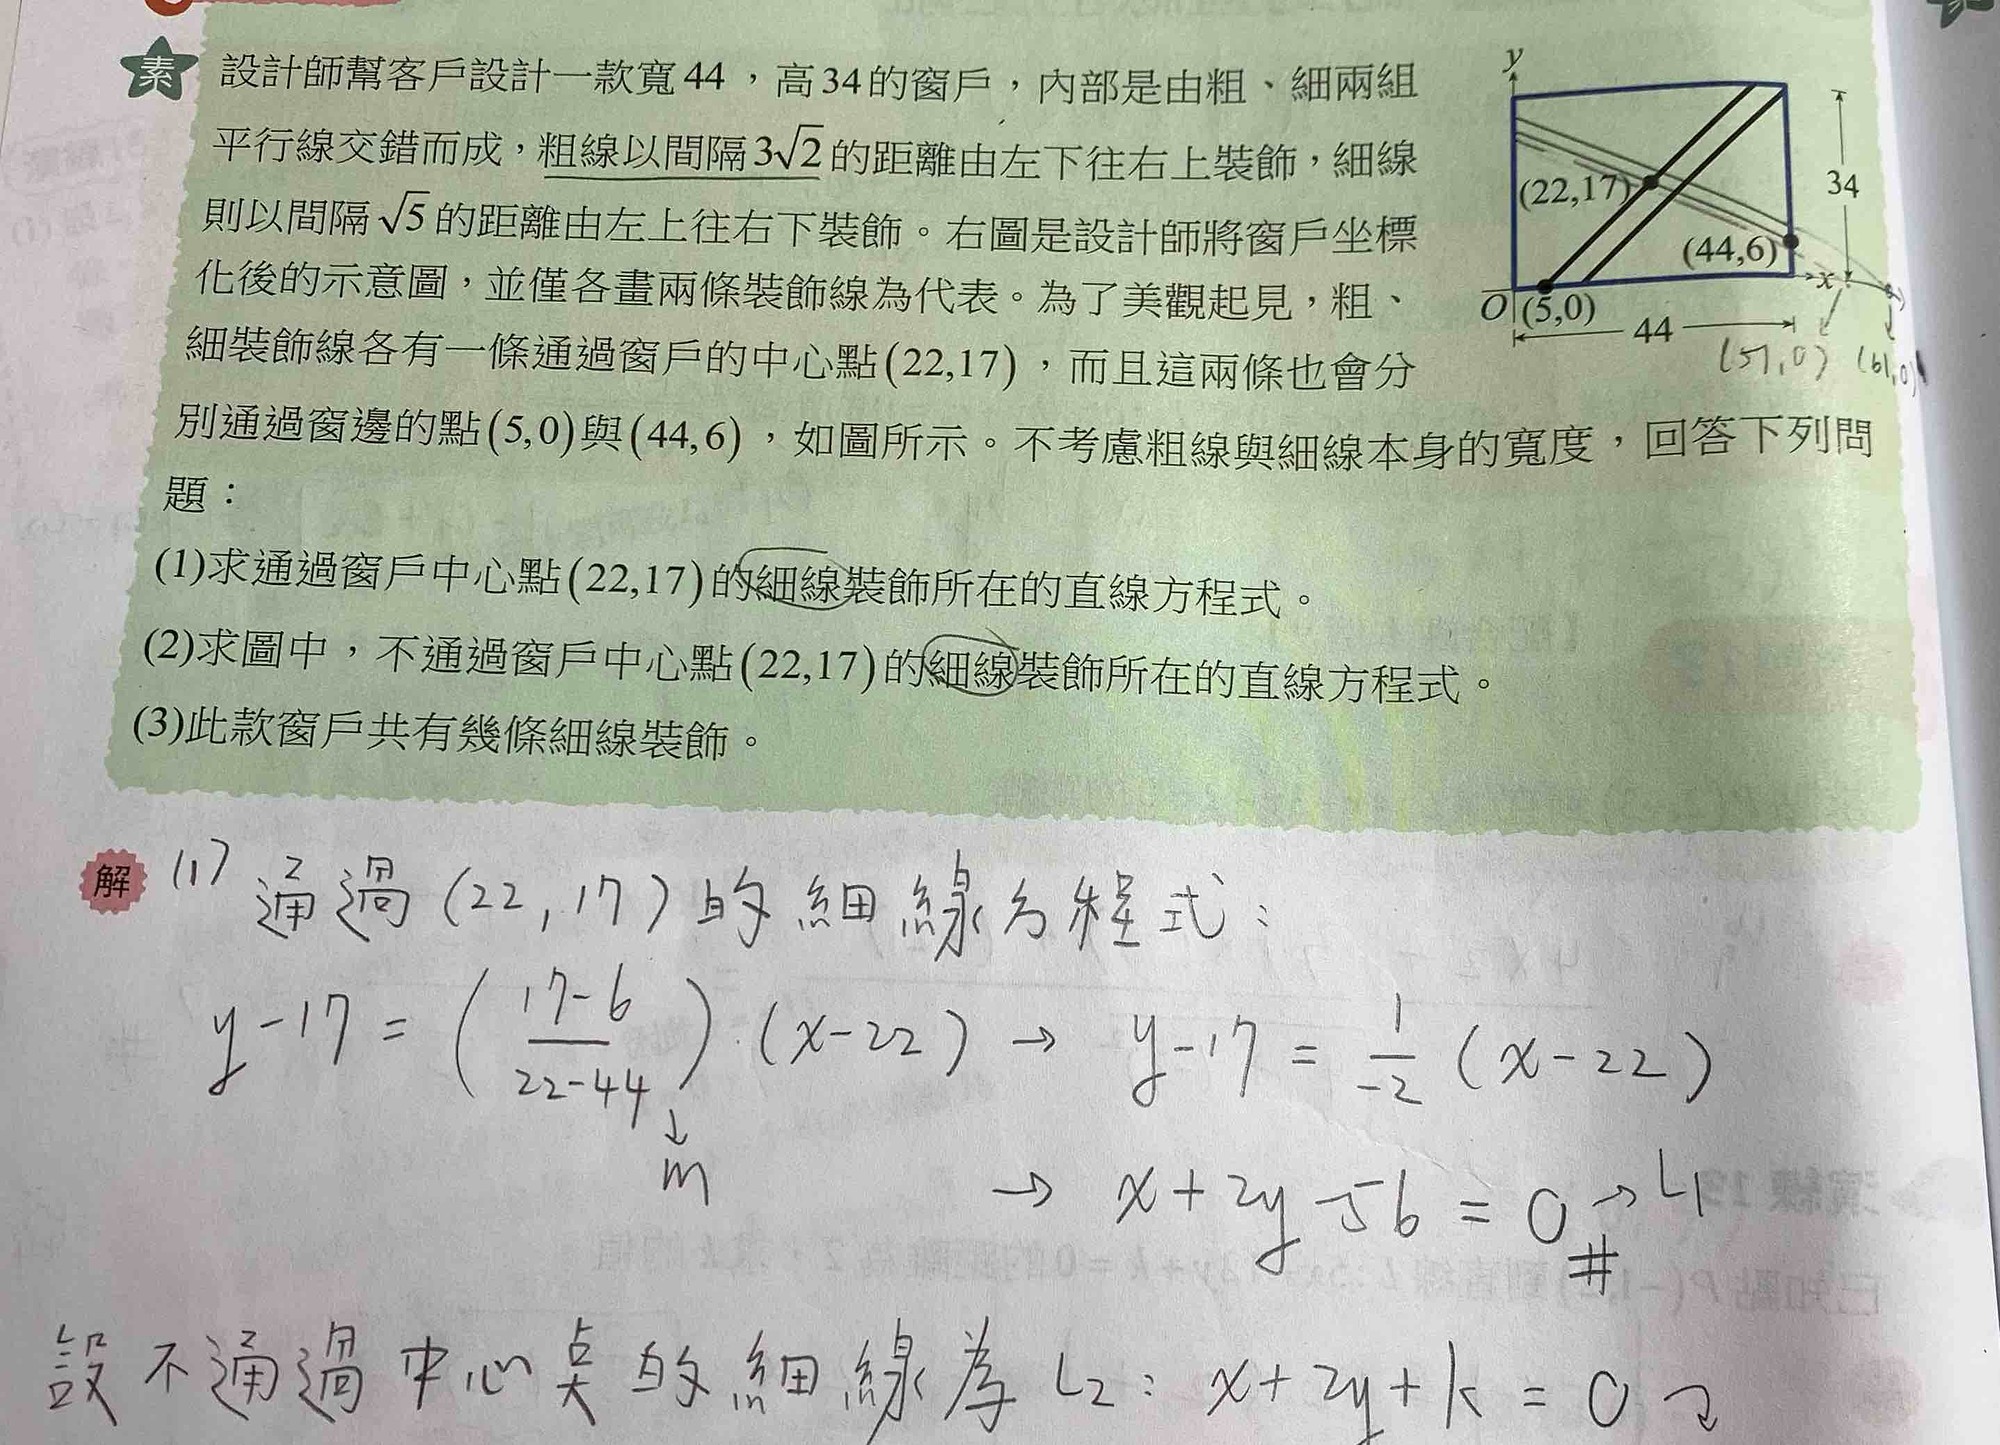 素
設計師幫客戶設計一款寬44，高34的窗戶，內部是由粗、細兩組
平行線交錯而成，粗線以間隔3√2的距離由左下往右上裝飾，細線
則以間隔√5的距離由左上往右下裝飾。右圖是設計師將窗戶坐標
化後的示意圖，並僅各畫兩條裝飾線為代表。為了美觀起見，粗、
細裝飾線各有一條通過窗戶的中心點(22,17)，而且這兩條也會分
別通過窗邊的點(5,0)與(44,6)，如圖所示。不考慮粗線與細線本身的寬度，回答下列問
題：
y
(22,17)
34
(44,6)
x
O
(5,0)
44
(51,0)
(61,0)
(1)求通過窗戶中心點(22,17)的細線裝飾所在的直線方程式。
(2)求圖中，不通過窗戶中心點(22,17)的細線裝飾所在的直線方程式。
(3)此款窗戶共有幾條細線裝飾。
解
(1) 通過(22,17)的細線方程式：
y-17 = (17-6/22-44)·(x-22) → y-17 = 1/-2 (x-22)
↓
m
→ x+2y-56 = 0 # → L1
設不通過中心點的細線為 L2: x+2y+k = 0